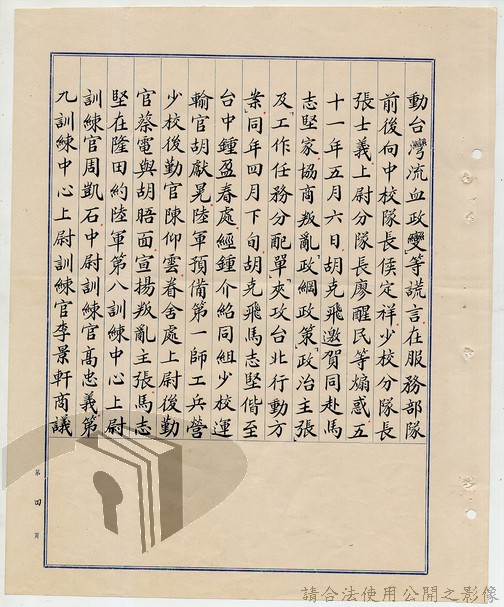 動台灣流血政變」等謊言在服務部隊
前後向中校隊長侯定祥少校分隊長
張士義上尉分隊長廖醒民等煽惑五
十一年五月六日胡克飛邀賀同赴馬
志堅家協商叛亂「政綱政策」「政治主張」
及「工作任務分配單」「夾攻台北行動方
案」同年四月下旬胡克飛馬志堅偕至
台中鍾盈春處經鍾介紹同組少校運
輸官胡獻晃陸軍預備第一師工兵營
少校後勤官陳仰雲眷舍處上尉後勤
官蔡電與胡晤面宣揚叛亂主張馬志
堅在隆田約陸軍第八訓練中心上尉
訓練官周凱石中尉訓練官高忠義第
九訓練中心上尉訓練官李景軒商議
第四頁
請合法使用公開之影像